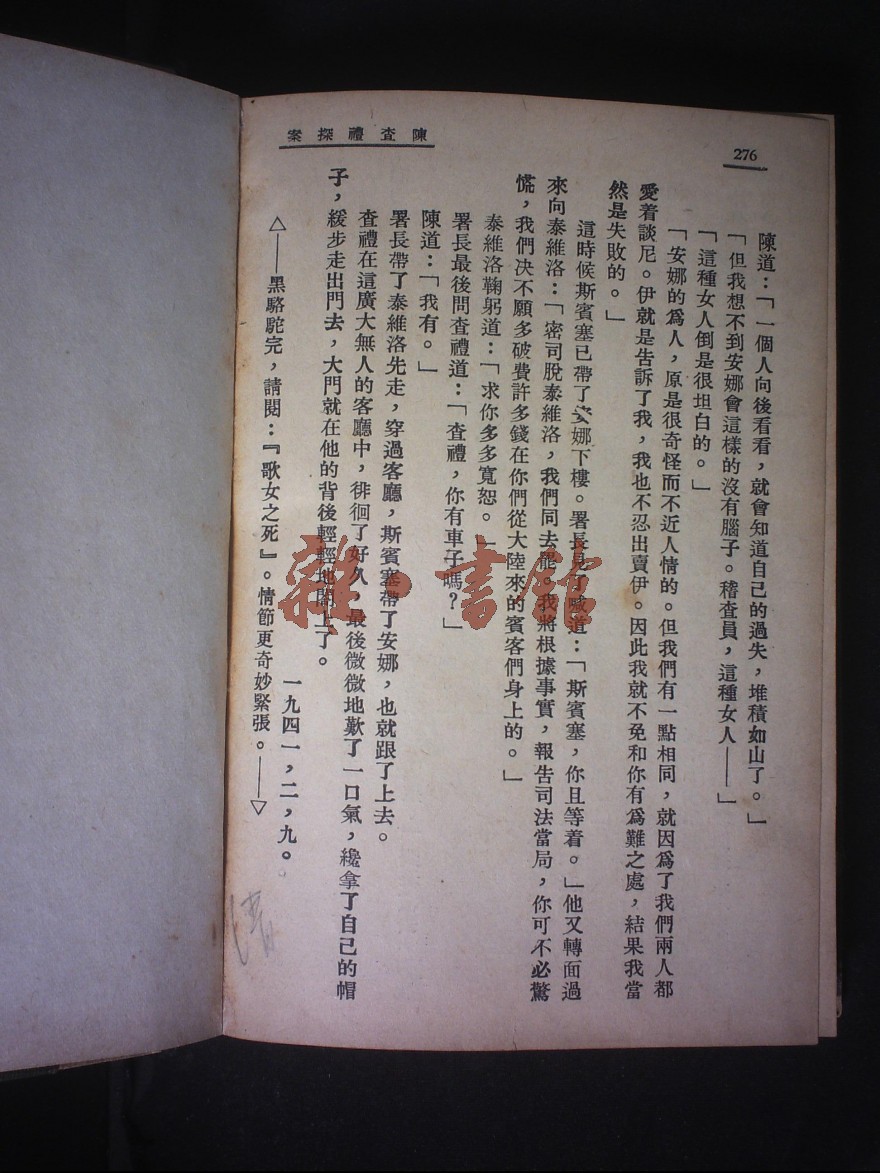 陳查禮探案
276
陳道：「一個人向後看看，就會知道自己的過失，堆積如山了。」
「但我想不到安娜會這樣的沒有腦子。稽查員，這種女人——」
「這種女人倒是很坦白的。」
「安娜的爲人，原是很奇怪而不近人情的。但我們有一點相同，就因爲了我們兩人都
愛着談尼。伊就是告訴了我，我也不忍出賣伊。因此我就不免和你有爲難之處，結果我當
然是失敗的。」
這時候斯賓塞已帶了安娜下樓。署長見了喊道：「斯賓塞，你且等着。」他又轉面過
來向泰維洛：「密司脫泰維洛，我們同去罷。我將根據事實，報告司法當局，你可不必驚
慌，我們决不願多破費許多錢在你們從大陸來的賓客們身上的。」
泰維洛鞠躬道：「求你多多寬恕。」
署長最後問查禮道：「查禮，你有車子嗎？」
陳道：「我有。」
署長帶了泰維洛先走，穿過客廳，斯賓塞帶了安娜，也就跟了上去。
查禮在這廣大無人的客廳中，徘徊了好久，最後微微地歎了一口氣，纔拿了自己的帽
子，緩步走出門去，大門就在他的背後輕輕地關上了。
一九四一，二，九。
△——黑駱駝完，請閱：『歌女之死』。情節更奇妙緊張。——▽
雜·書館